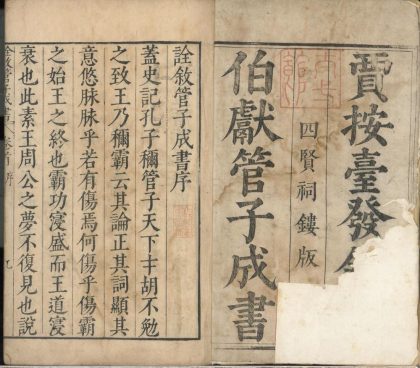 賈按臺發
四賢祠鏤版
伯獻管子成書
詮敘管子成書序
蓋史記孔子穪管子天下才胡不勉
之致王乃穪霸云其論正其詞顯其
意悠脉脉乎若有傷焉何傷乎傷霸
之始王之終也霸功寖盛而王道寖
衰也此素王周公之夢不復見也說
詮敘管子成書